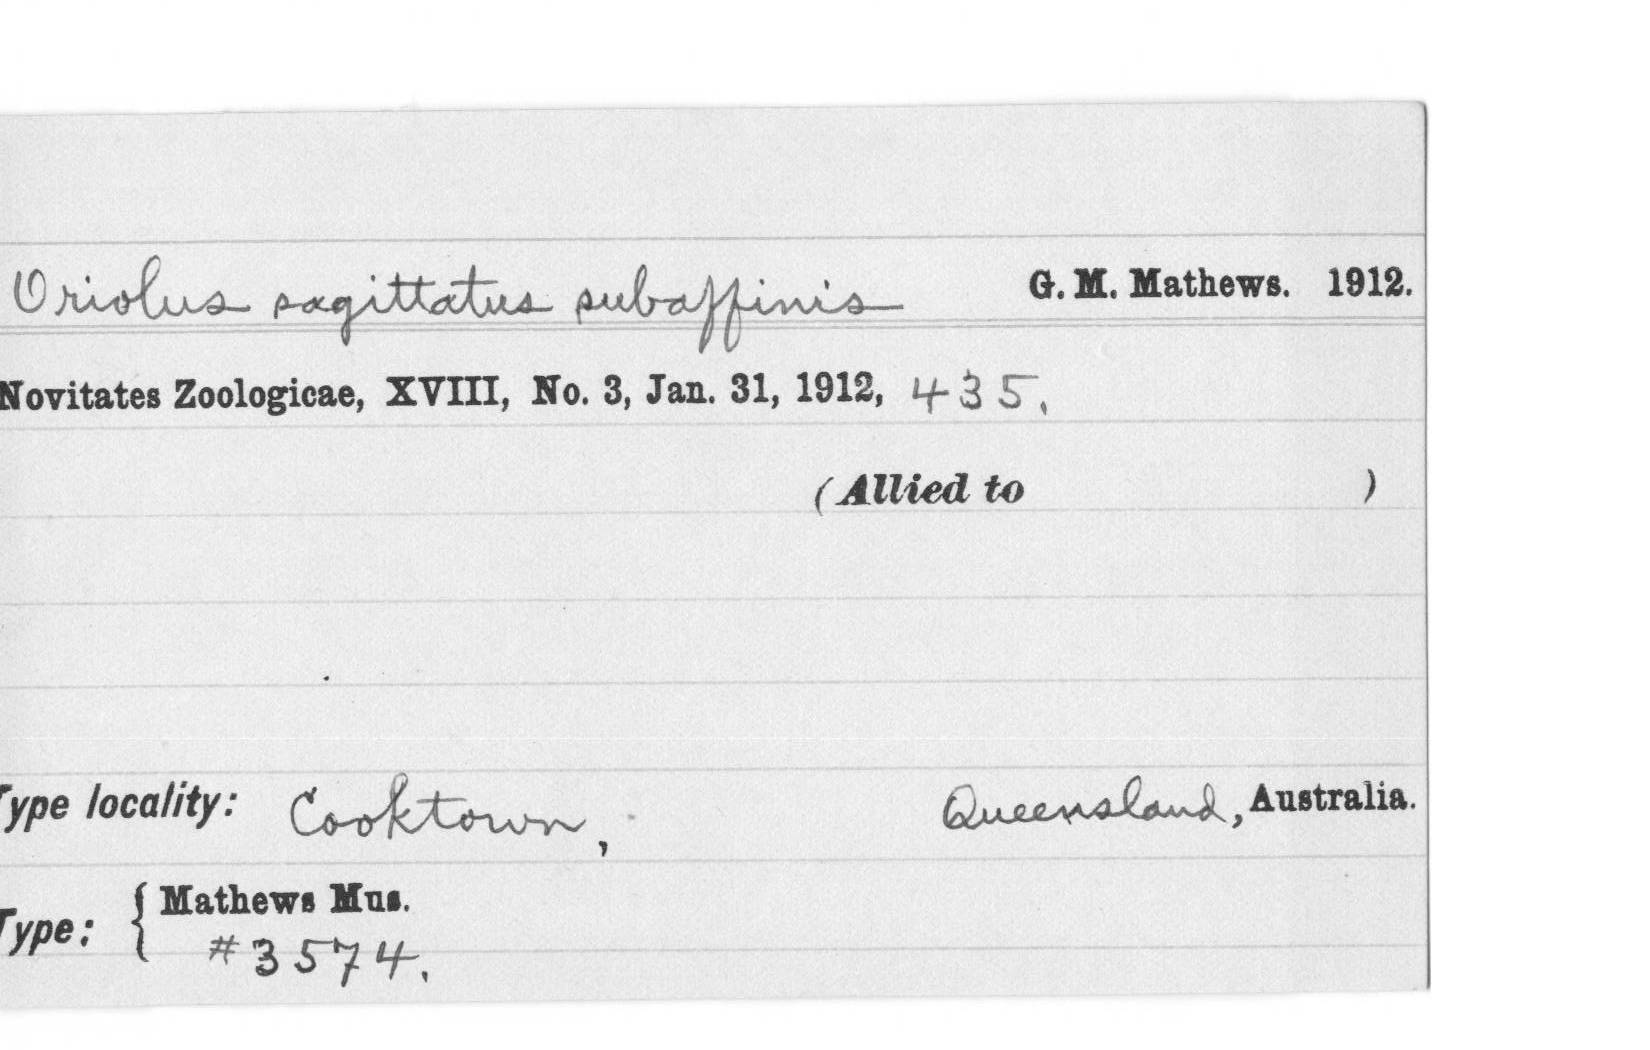 Oriolus sagittatus subaffinis G. M. Mathews. 1912.
Novitates Zoologicae, XVIII, No. 3, Jan. 31, 1912, 435.
(Allied to )
Type locality: Cooktown, Queensland, Australia.
Type: { Mathews Mus.
#3574.